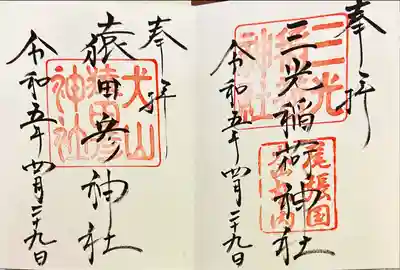 奉拝
三光稲荷神社
令和五年四月二十九日
三光
稲荷
神社
尾張国
犬山城内
奉拝
猿田彦神社
令和五年四月二十九日
犬山
猿田彦
神社